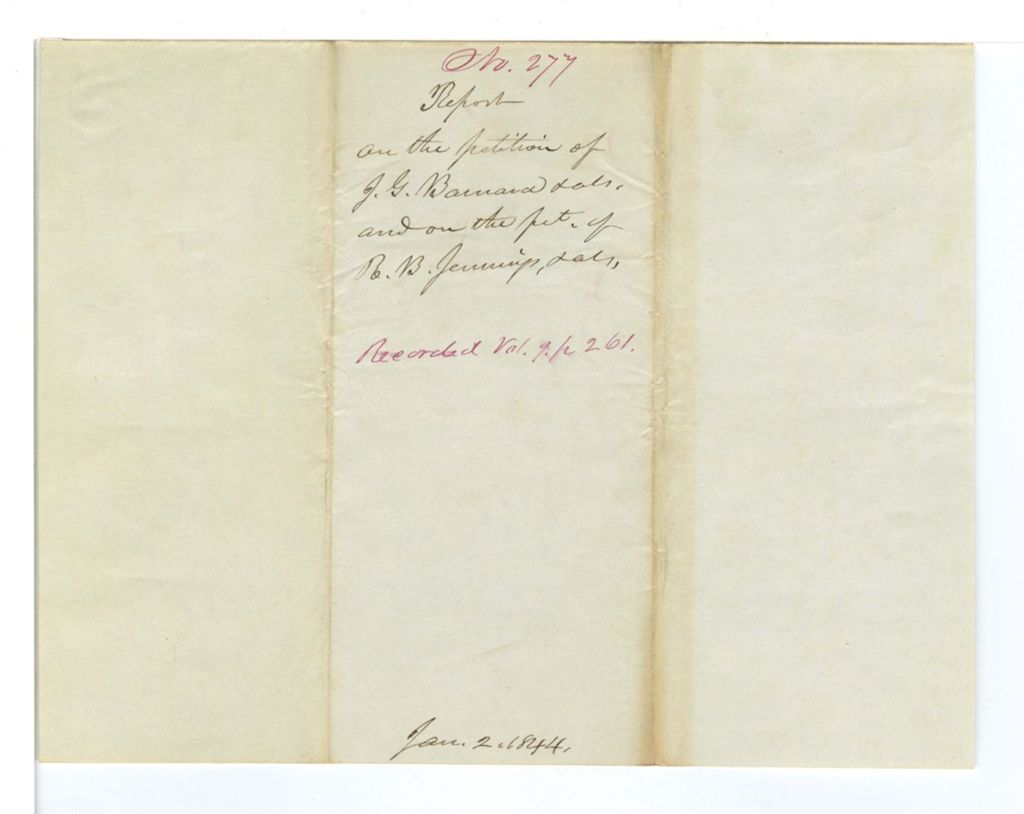 No. 277
Report
on the petition of
J. G. Barnard & als.
and on the pet. of
R. B. Jennings, & als,
Recorded Vol. 9. p 261.
Jan. 2. 1844.